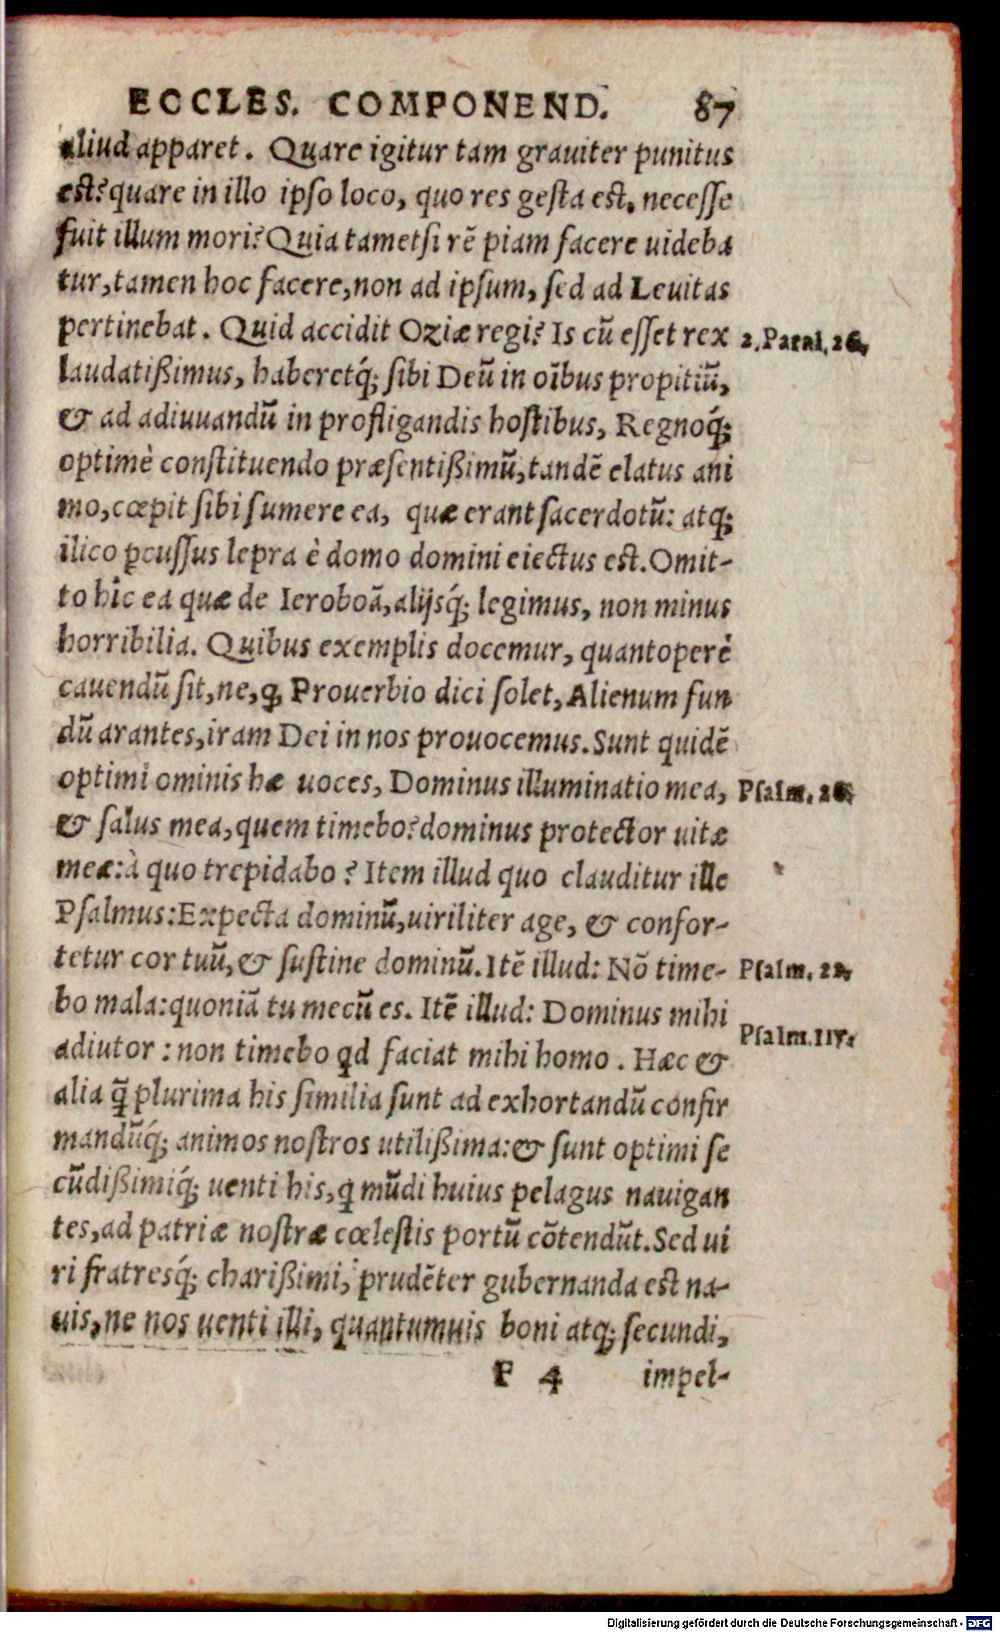 ECCLES. COMPONEND. 87
aliud apparet. Quare igitur tam grauiter punitus
est? quare in illo ipso loco, quo res gesta est, necesse
fuit illum mori? Quia tametsi rē piam facere uideba
tur, tamen hoc facere, non ad ipsum, sed ad Leuitas
pertinebat. Quid accidit Oziæ regi? Is cū esset rex
2. Paral. 26.
laudatißimus, haberetq́; sibi Deū in oībus propitiū,
& ad adiuuandū in profligandis hostibus, Regnoq́;
optimè constituendo præsentißimū, tandē elatus ani
mo, cœpit sibi sumere ea, quæ erant sacerdotū: atq;
ilico ꝑcussus lepra è domo domini eiectus est. Omit-
to hîc ea quæ de Ieroboā, alijsq́; legimus, non minus
horribilia. Quibus exemplis docemur, quantoperè
cauendū sit, ne, ꝙ Prouerbio dici solet, Alienum fun
dū arantes, iram Dei in nos prouocemus. Sunt quidē
optimi ominis hæ uoces, Dominus illuminatio mea,
Psalm. 26.
& salus mea, quem timebo? dominus protector uitæ
meæ: à quo trepidabo? Item illud quo clauditur ille
Psalmus: Expecta dominū, uiriliter age, & confor-
tetur cor tuū, & sustine dominū. Itē illud: Nō time-
Psalm. 22.
bo mala: quoniā tu mecū es. Itē illud: Dominus mihi
Psalm. 117.
adiutor: non timebo qd faciat mihi homo. Hæc &
alia q̄ plurima his similia sunt ad exhortandū confir
mandūq́; animos nostros utilißima: & sunt optimi se
cūdißimiq́; uenti his, q mūdi huius pelagus nauigan
tes, ad patriæ nostræ cœlestis portū cōtendūt. Sed ui
ri fratresq́; charißimi, prudēter gubernanda est na-
uis, ne nos uenti illi, quantumuis boni atq; secundi,
F 4 impel-
Digitalisierung gefördert durch die Deutsche Forschungsgemeinschaft - DFG